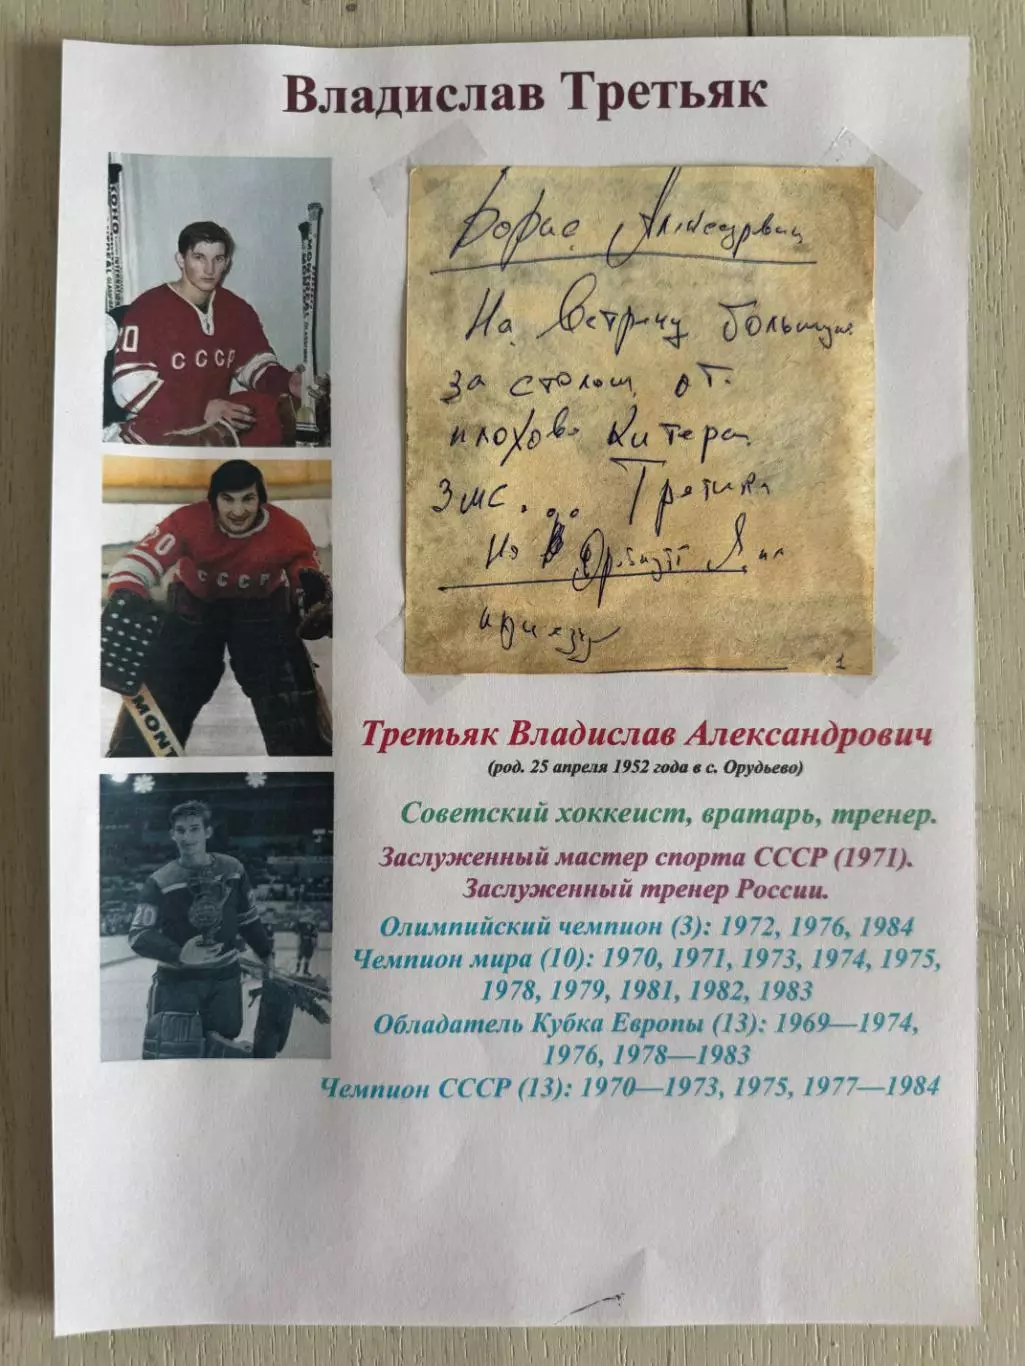 Владислав Третьяк
KOHO
20
СССР
Борис Александрович
На Встречу
за столом от
плохово
ЗМС...
На
приезу
1
20
СССР
MONT
20
Третьяк Владислав Александрович
(род. 25 апреля 1952 года в с. Орудьево)
Советский хоккеист, вратарь, тренер.
Заслуженный мастер спорта СССР (1971).
Заслуженный тренер России.
Олимпийский чемпион (3): 1972, 1976, 1984
Чемпион мира (10): 1970, 1971, 1973, 1974, 1975,
1978, 1979, 1981, 1982, 1983
Обладатель Кубка Европы (13): 1969—1974,
1976, 1978—1983
Чемпион СССР (13): 1970—1973, 1975, 1977—1984